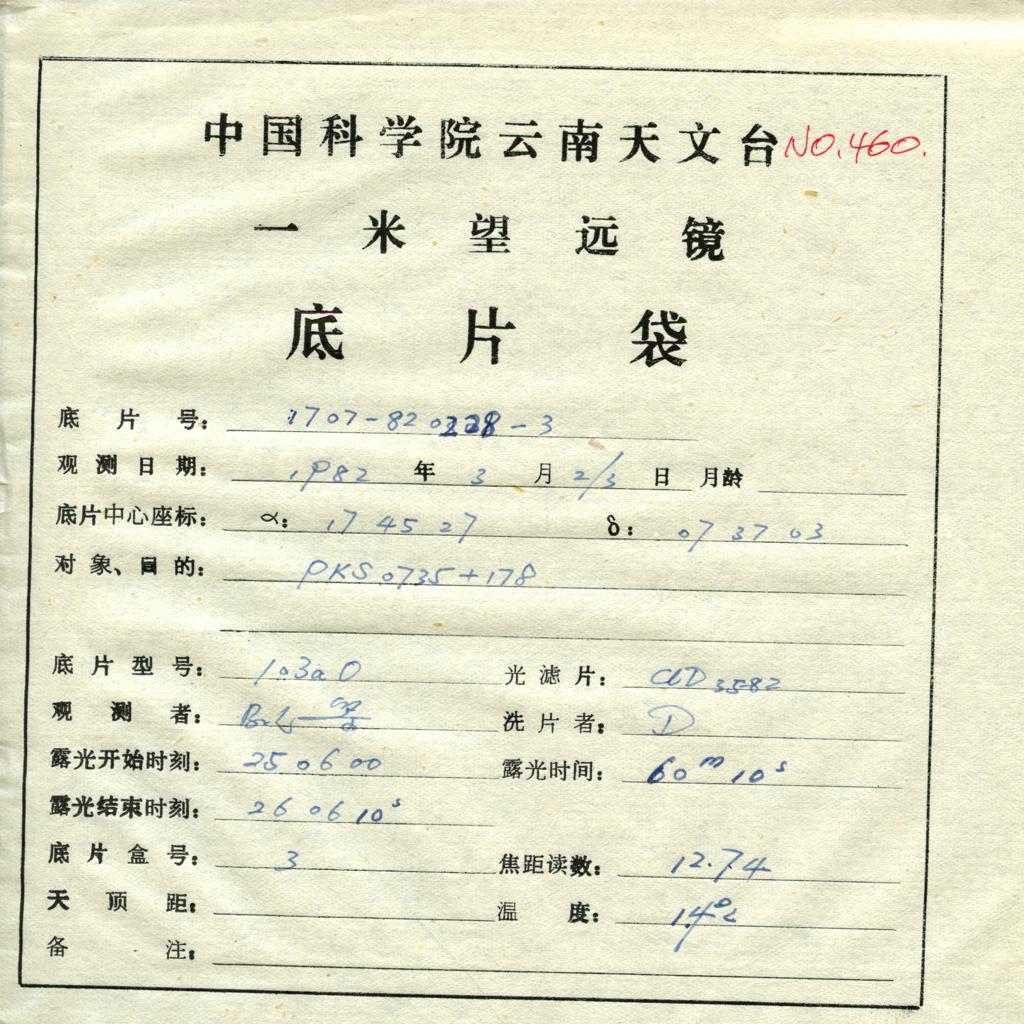 中国科学院云南天文台 NO.460.
一米望远镜
底片袋
底片号： 1707-820228-3
观测日期： 1982 年 3 月 2/3 日 月龄
底片中心座标： α： 17 45 27 δ： 07 37 03
对象、目的： PKS 0735+178
底片型号： 103a O 光滤片： 3582
观测者： 洗片者： D
露光开始时刻： 25 06 00 露光时间： 60m 10s
露光结束时刻： 26 06 10s
底片盒号： 3 焦距读数： 12.74
天顶距： 温度： 14°c
备注：